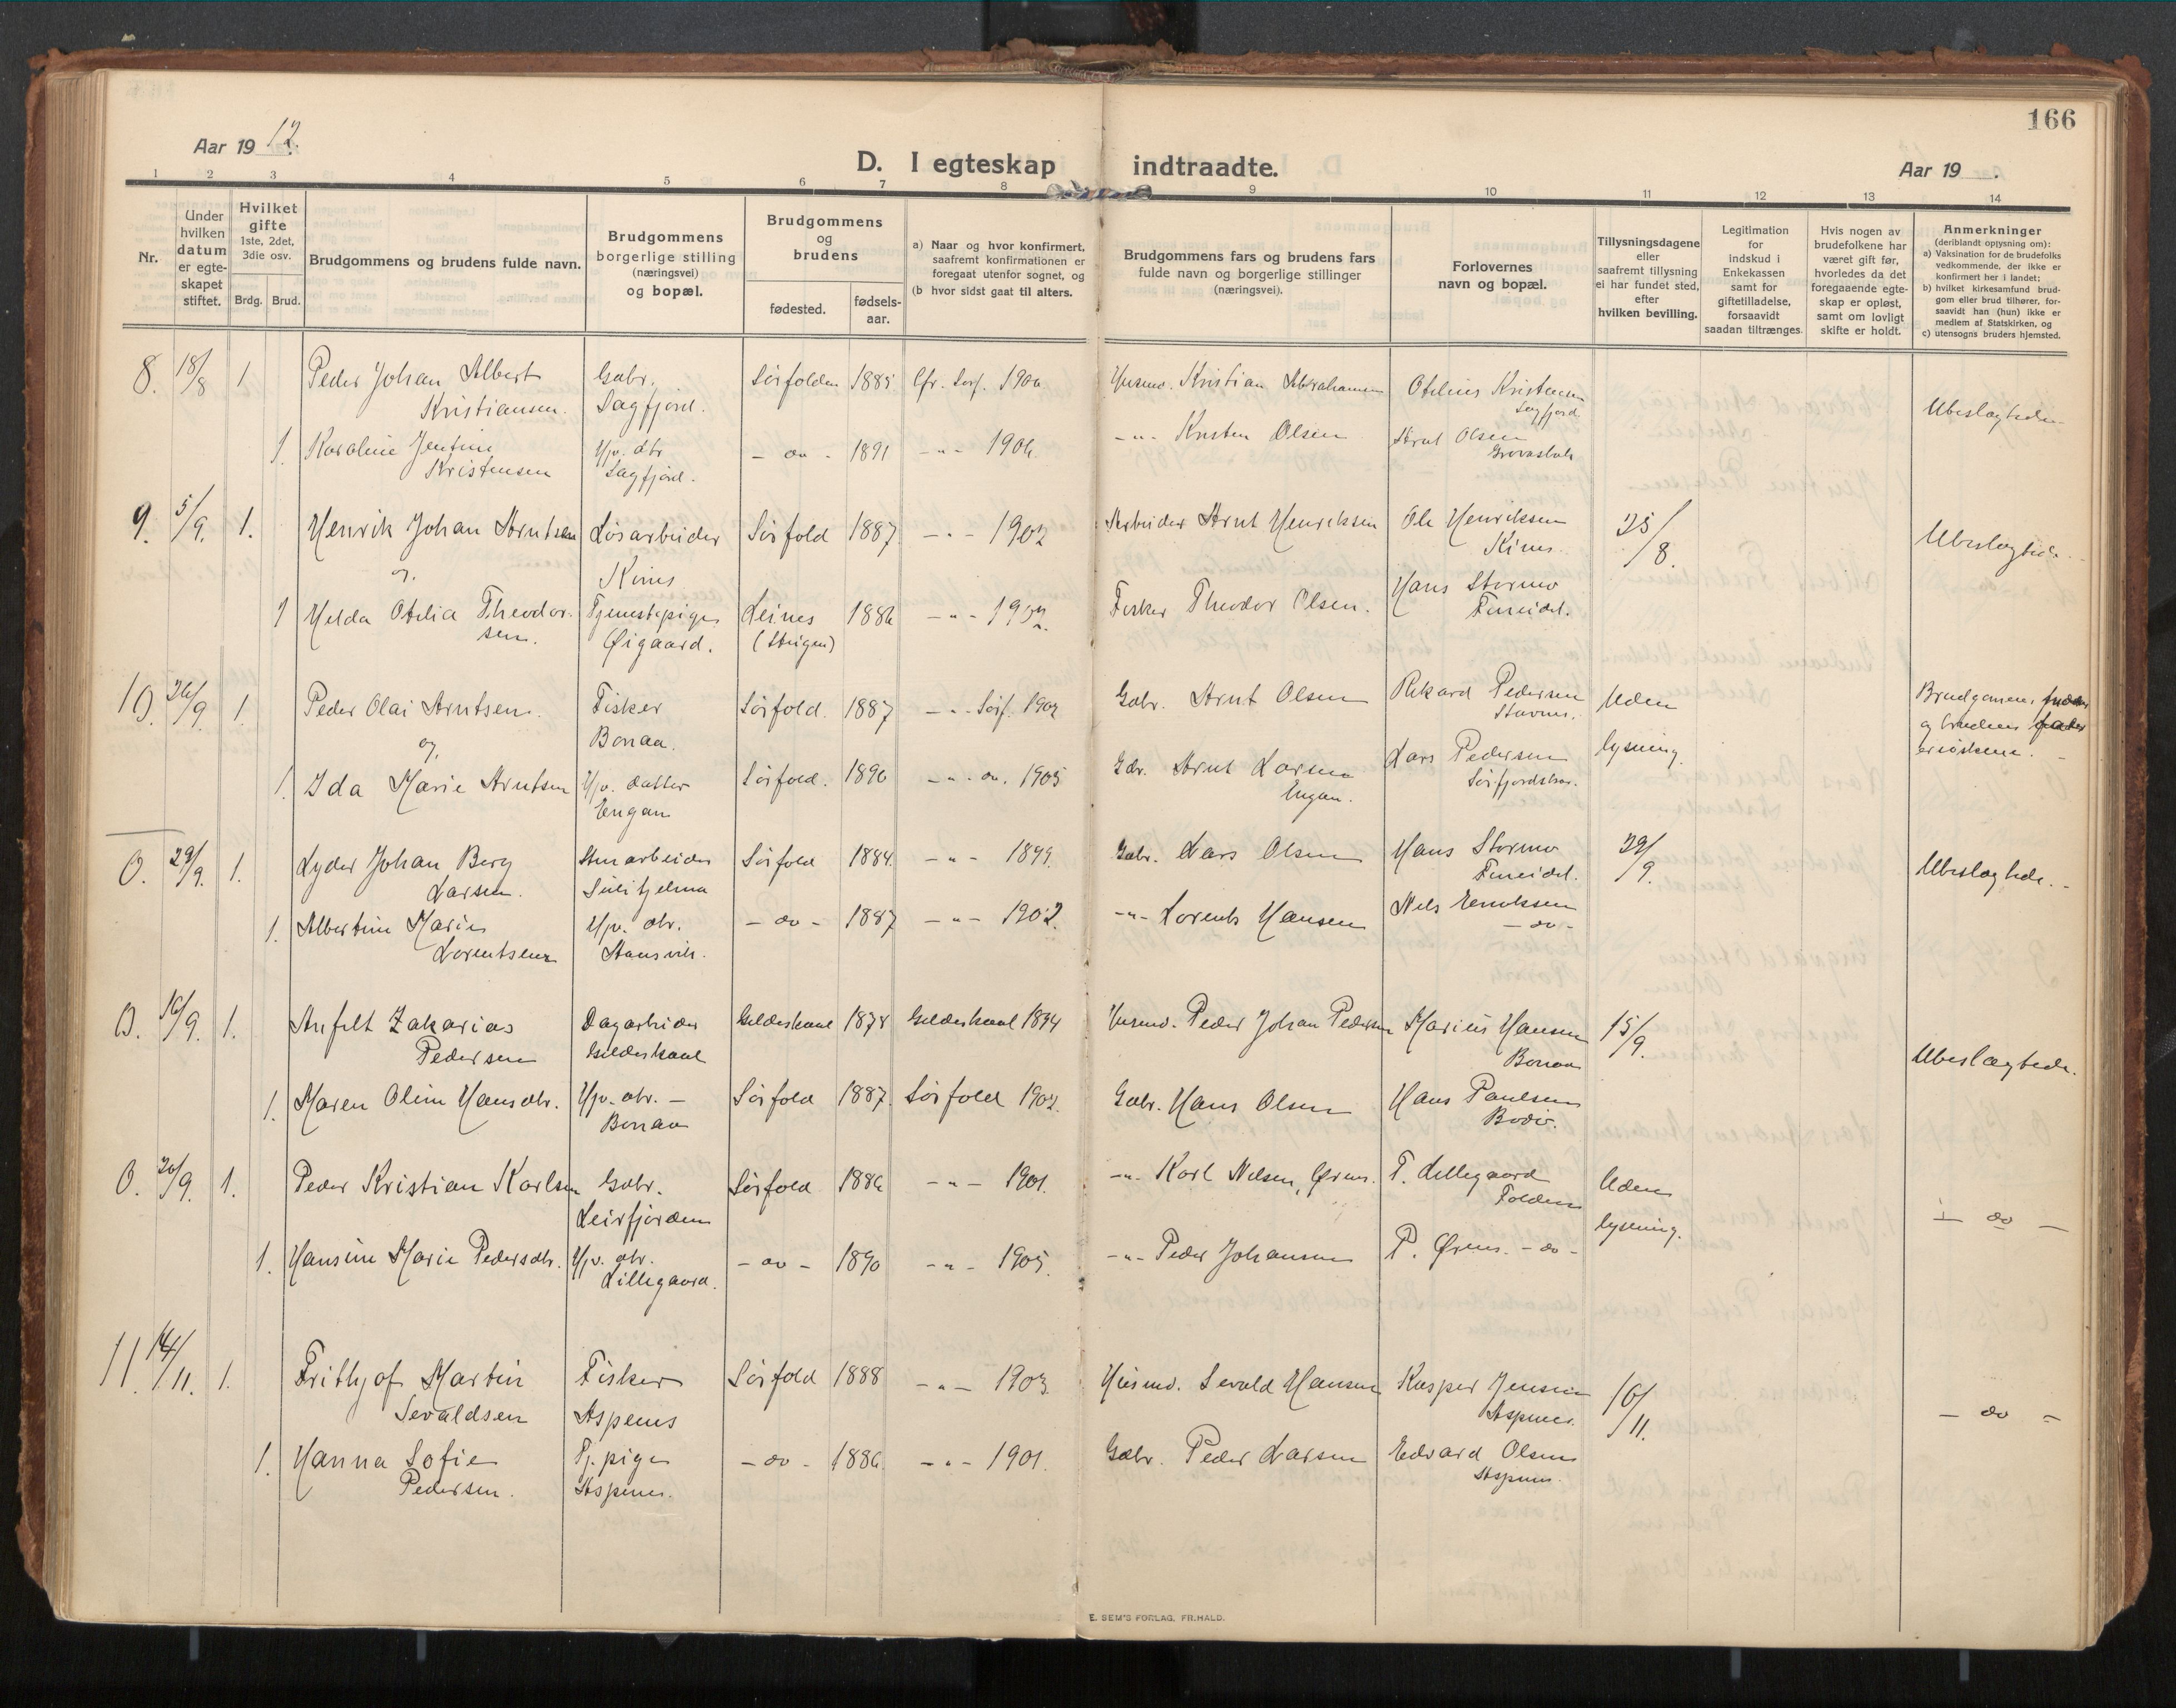 166
Aar 1912.
D. I egteskap indtraadte.
Aar 19 .
1 2 3 4 5 6 7 8 9 10 11 12 13 14
Nr.
Under hvilken datum er egte-skapet stiftet.
Hvilket gifte 1ste, 2det, 3die osv.
Brdg. Brud.
Brudgommens og brudens fulde navn.
Brudgommens borgerlige stilling (næringsvei) og bopæl.
Brudgommens og brudens
fødested.
fødsels-aar.
a) Naar og hvor konfirmert, saafremt konfirmationen er foregaat utenfor sognet, og
(b hvor sidst gaat til alters.
Brudgommens fars og brudens fars fulde navn og borgerlige stillinger (næringsvei).
Forlovernes navn og bopæl.
Tillysningsdagene eller saafremt tillysning ei har fundet sted, efter hvilken bevilling.
Legitimation for indskud i Enkekassen samt for giftetilladelse, forsaavidt saadan tiltrænges.
Hvis nogen av brudefolkene har været gift før, hvorledes da det foregaaende egte-skap er opløst, samt om lovligt skifte er holdt.
Anmerkninger (deriblandt opjysning om):
a) Vaksination for de brudefolks vedkommende, der ikke er konfirmert her i landet;
b) hvilket kirkesamfund brud-gom eller brud tilhører, for-saavidt han (hun) ikke er medlem af Statskirken, og
c) utensogns bruders hjemsted.
8. 18/8 1. Peder Johan Albert Gabr. Sørfolden 1885 1900 Husmd. Kristian Abrahamsen Otelius Kristensen
Kristiansen. Sagfjord. Sagfjord Ubeslægtede
1. Karoline Jentine Hjv. dtr - do - 1891 - " - 1906. - " - Kristen Olsen Arnt Olsen
Kristensen Sagfjord.
9. 5/9. 1. Henrik Johan Arntsen Løsarbeider Sørfold 1887 - " - 1902 Arbeider Arnt Henriksen Ole Henriksen 25/8. Ubeslægtede.
og. Kines Kines.
1 Helda Otelia Theodor- Tjenestepige Leines 1886 - " - Fisker Theodor Olsen. Hans Stormo
sen. Øigaard. (Steigen) Fineidet.
10. 26/9 1. Peder Olai Arntsen. Fisker Sørfold. 1887 - " - Sørf. 1902 Gabr. Arnt Olsen Rikard Pedersen Uden Brudgomens
og Bonaa. Stavnes. lysning. og brudens
1. Ida Marie Arntsen Hjv. datter Sørfold. 1890 - " - do. 1905 Arnt Larsen Lars Pedersen er søskene.
Engan Engan.
0. 29/9. 1. Lyder Johan Berg Sørfold 1884. - " - 1899. Gabr. Lars Olsen Hans Stormo 29/9. Ubeslægtede.
Larsen. Sulitjelma Fineidet.
1. Albertine Marie Hjv. dtr. - do - 1887 - " - 1902. - " - Lorents Hansen Nils Henriksen
Lorentsen - do -
0. 16/9. 1. Anfelt Zakarias Dagarbeider Gildeskaal 1878 Gildeskaal 1894 Husmd. Peder Johan Pedersen Marius Hansen 15/9. Ubeslægtede.
Pedersen Gildeskaal Bonaa
1. Maren Oline Hansdtr. Hjv. dtr. - Sørfold 1887. Sørfold 1902. Gabr. Hans Olsen Hans Paulsen
Bonaa Bodø.
0. 20/9. 1. Peder Kristian Karlsen Gabr. Sørfold 1886 - " - 1901. - " - Karl Nilsen, Ørnes. P. Lillegaard Uden - do -
Leirfjorden Folden lysning.
1. Hansine Marie Pedersdtr. Hjv. dtr. - do - 1890 - " - 1905. - " - Peder Johansen P. Ørnes. - do -
Lillegaard.
11. 14/11. 1. Frithjof Martin Fisker Sørfold 1888 - " - 1903. Husmd. Sevald Hansen Kasper Jensen 10/11. - do -
Sevaldsen Aspenes Aspnes.
1. Hanna Sofie Tj. pige - do - 1886. - " - 1901. Gabr. Peder Larsen Edvard Olsen
Pedersen. Aspenes. Aspnes.
E. SEM'S FORLAG, FR.HALD.